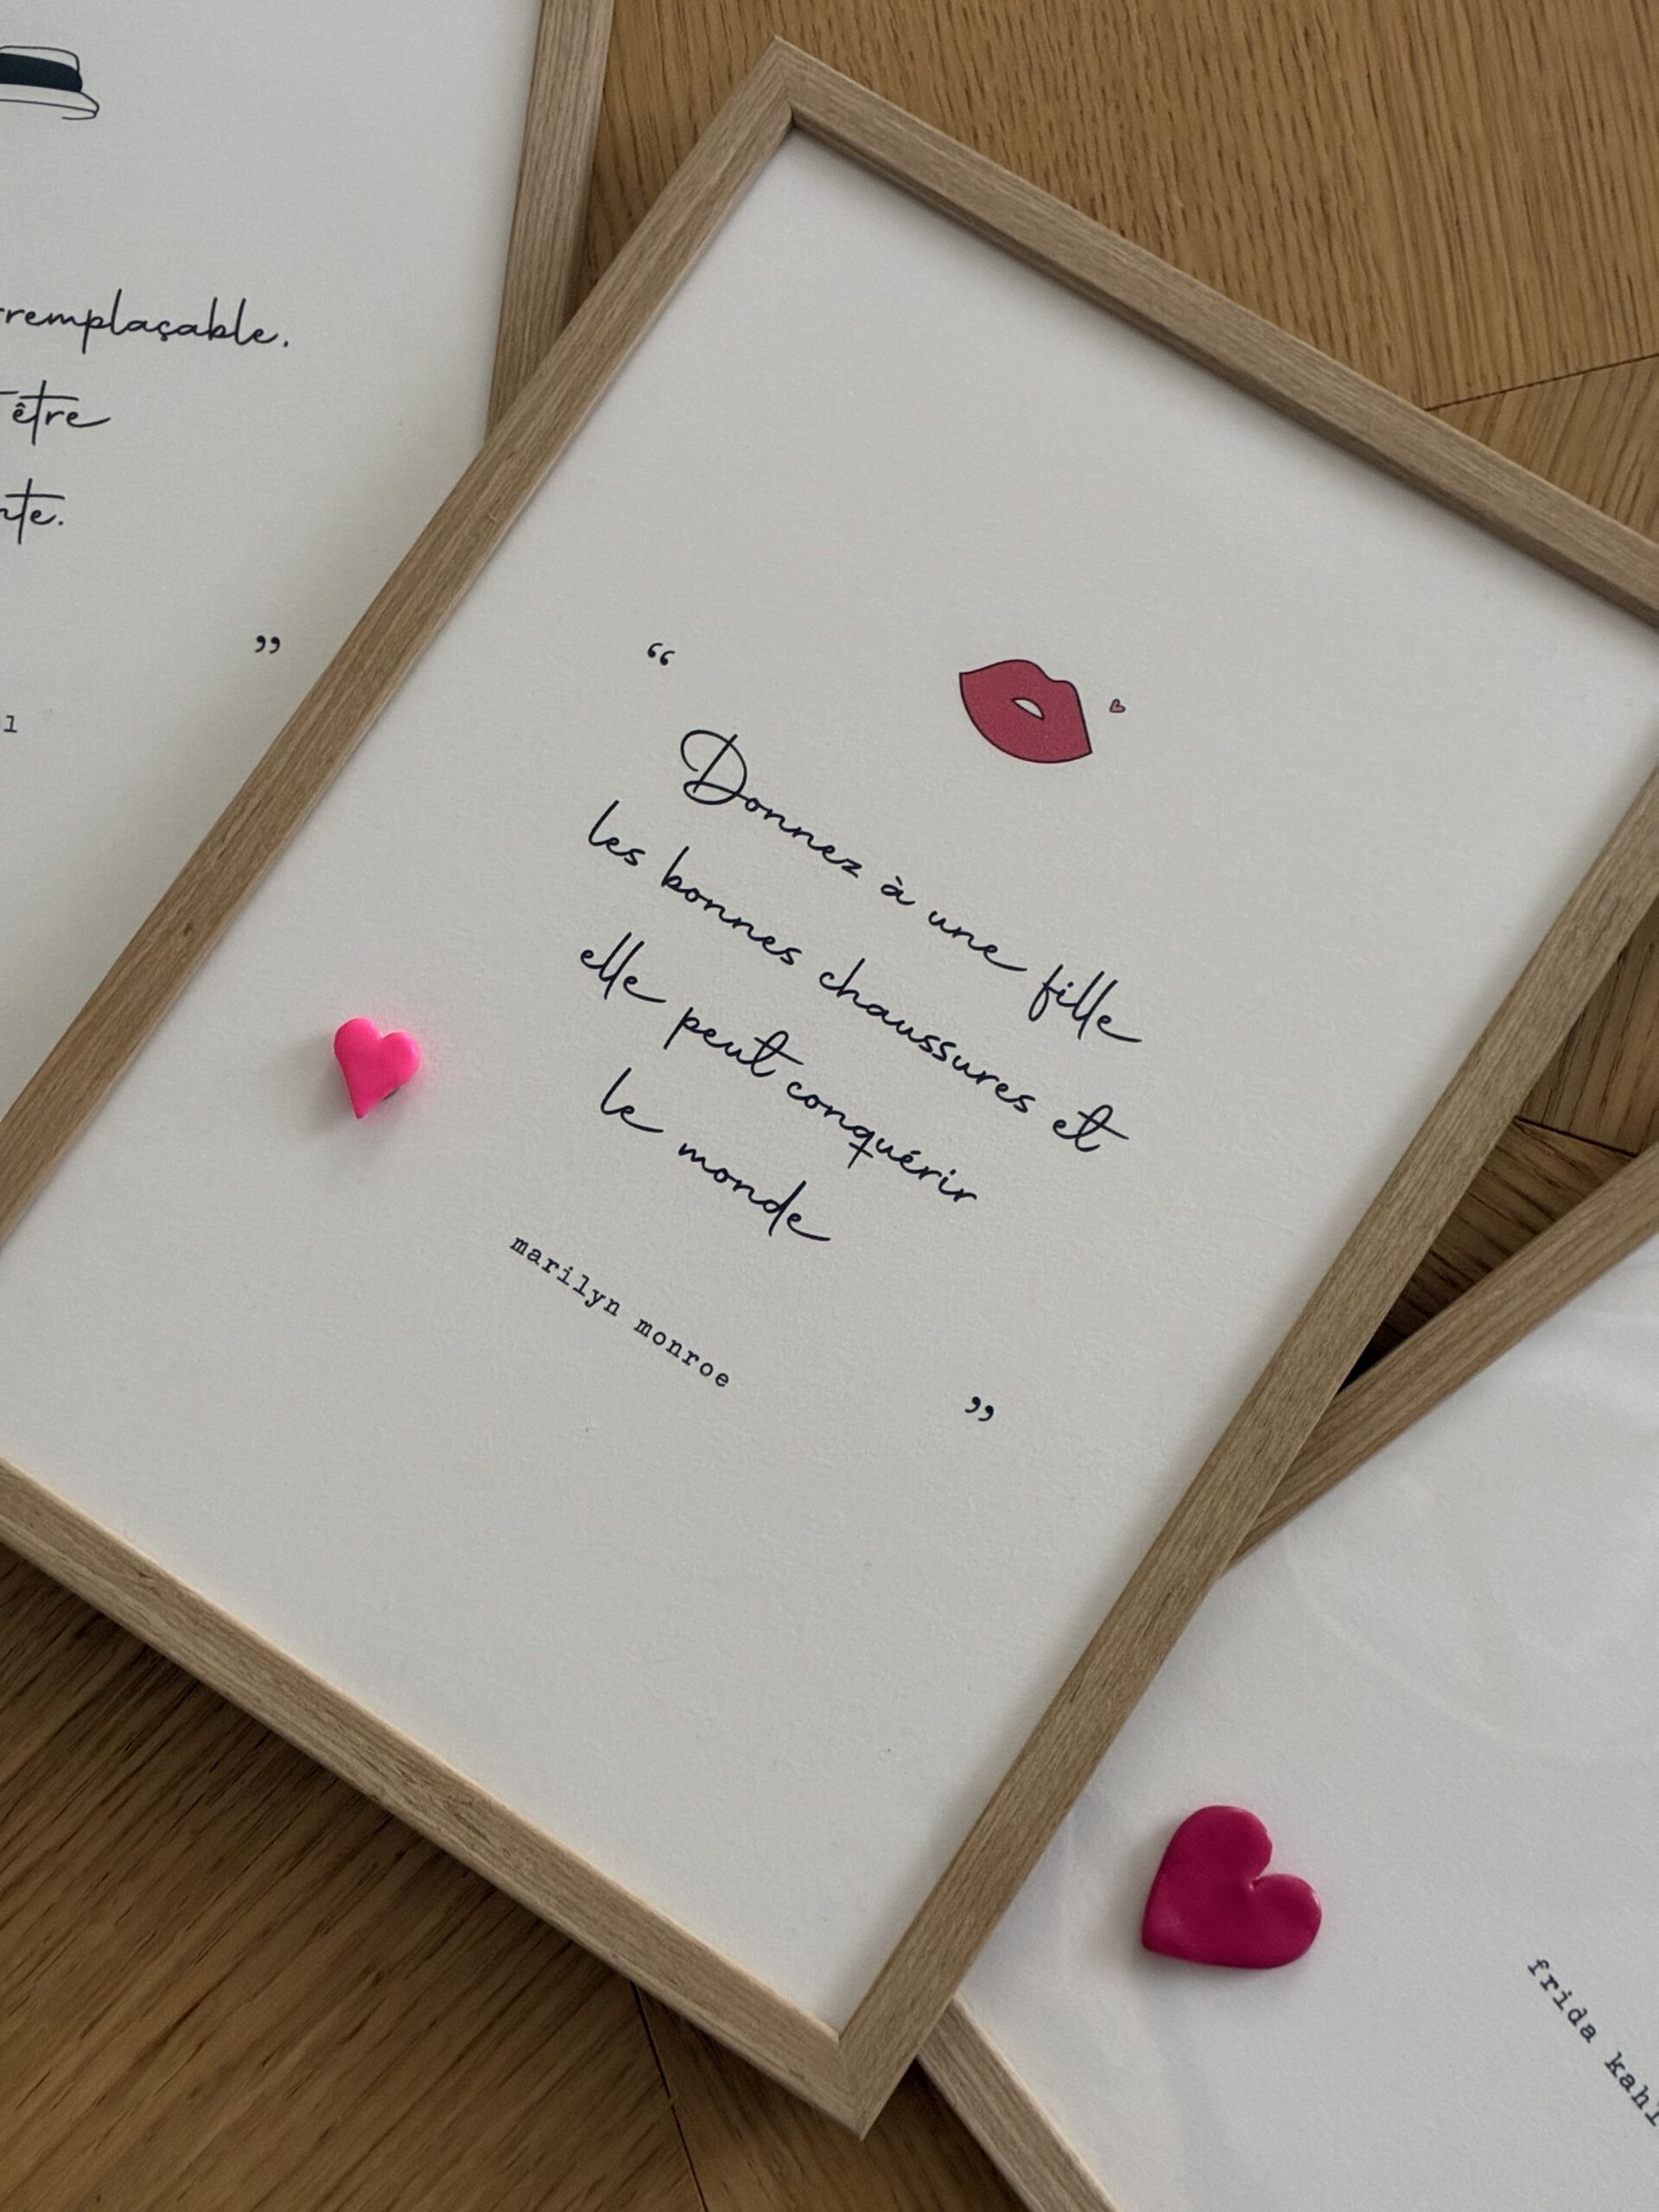 être
”
“
Donnez à une fille
les bonnes chaussures et
elle peut conquérir
le monde
marilyn monroe
”
frida